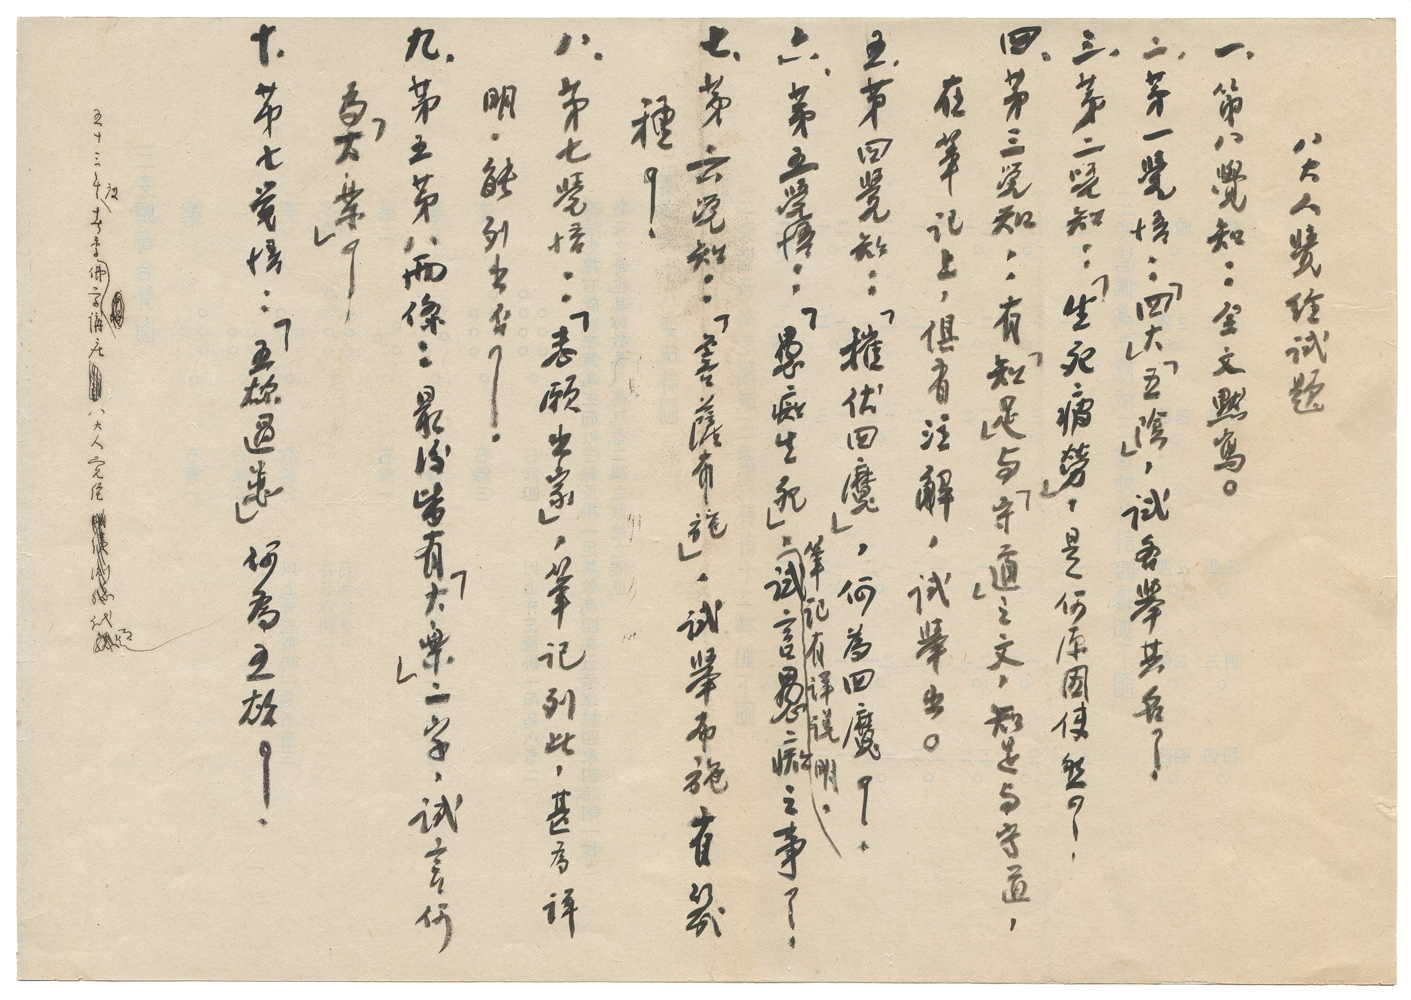 八大人覺經試題
一、第八覺知：：全文默寫。
二、第一覺悟：：「四大」「五陰」，試各舉其名？
三、第二覺知：：「生死疲勞」，是何原因使然？
四、第三覺知：：有「知足」与「守道」之文，知足与守道，
在筆記上，俱有注解，試舉出。
五、第四覺知：：「摧伏四魔」，何為四魔？
六、第五覺悟：：「愚痴生死」，筆記有詳說明。試言愚痴之事？
七、第六覺知：：「菩薩布施」，試舉布施有幾
種？
八、第七覺悟：：「志願出家」，筆記列此，甚為詳
明，能列出否？
九、第五第八兩條：最後皆有「大樂」二字，試言何
為「大樂」？
十、第七覺悟：：「五欲過患」何為五欲？
五十三年 八大人覺經